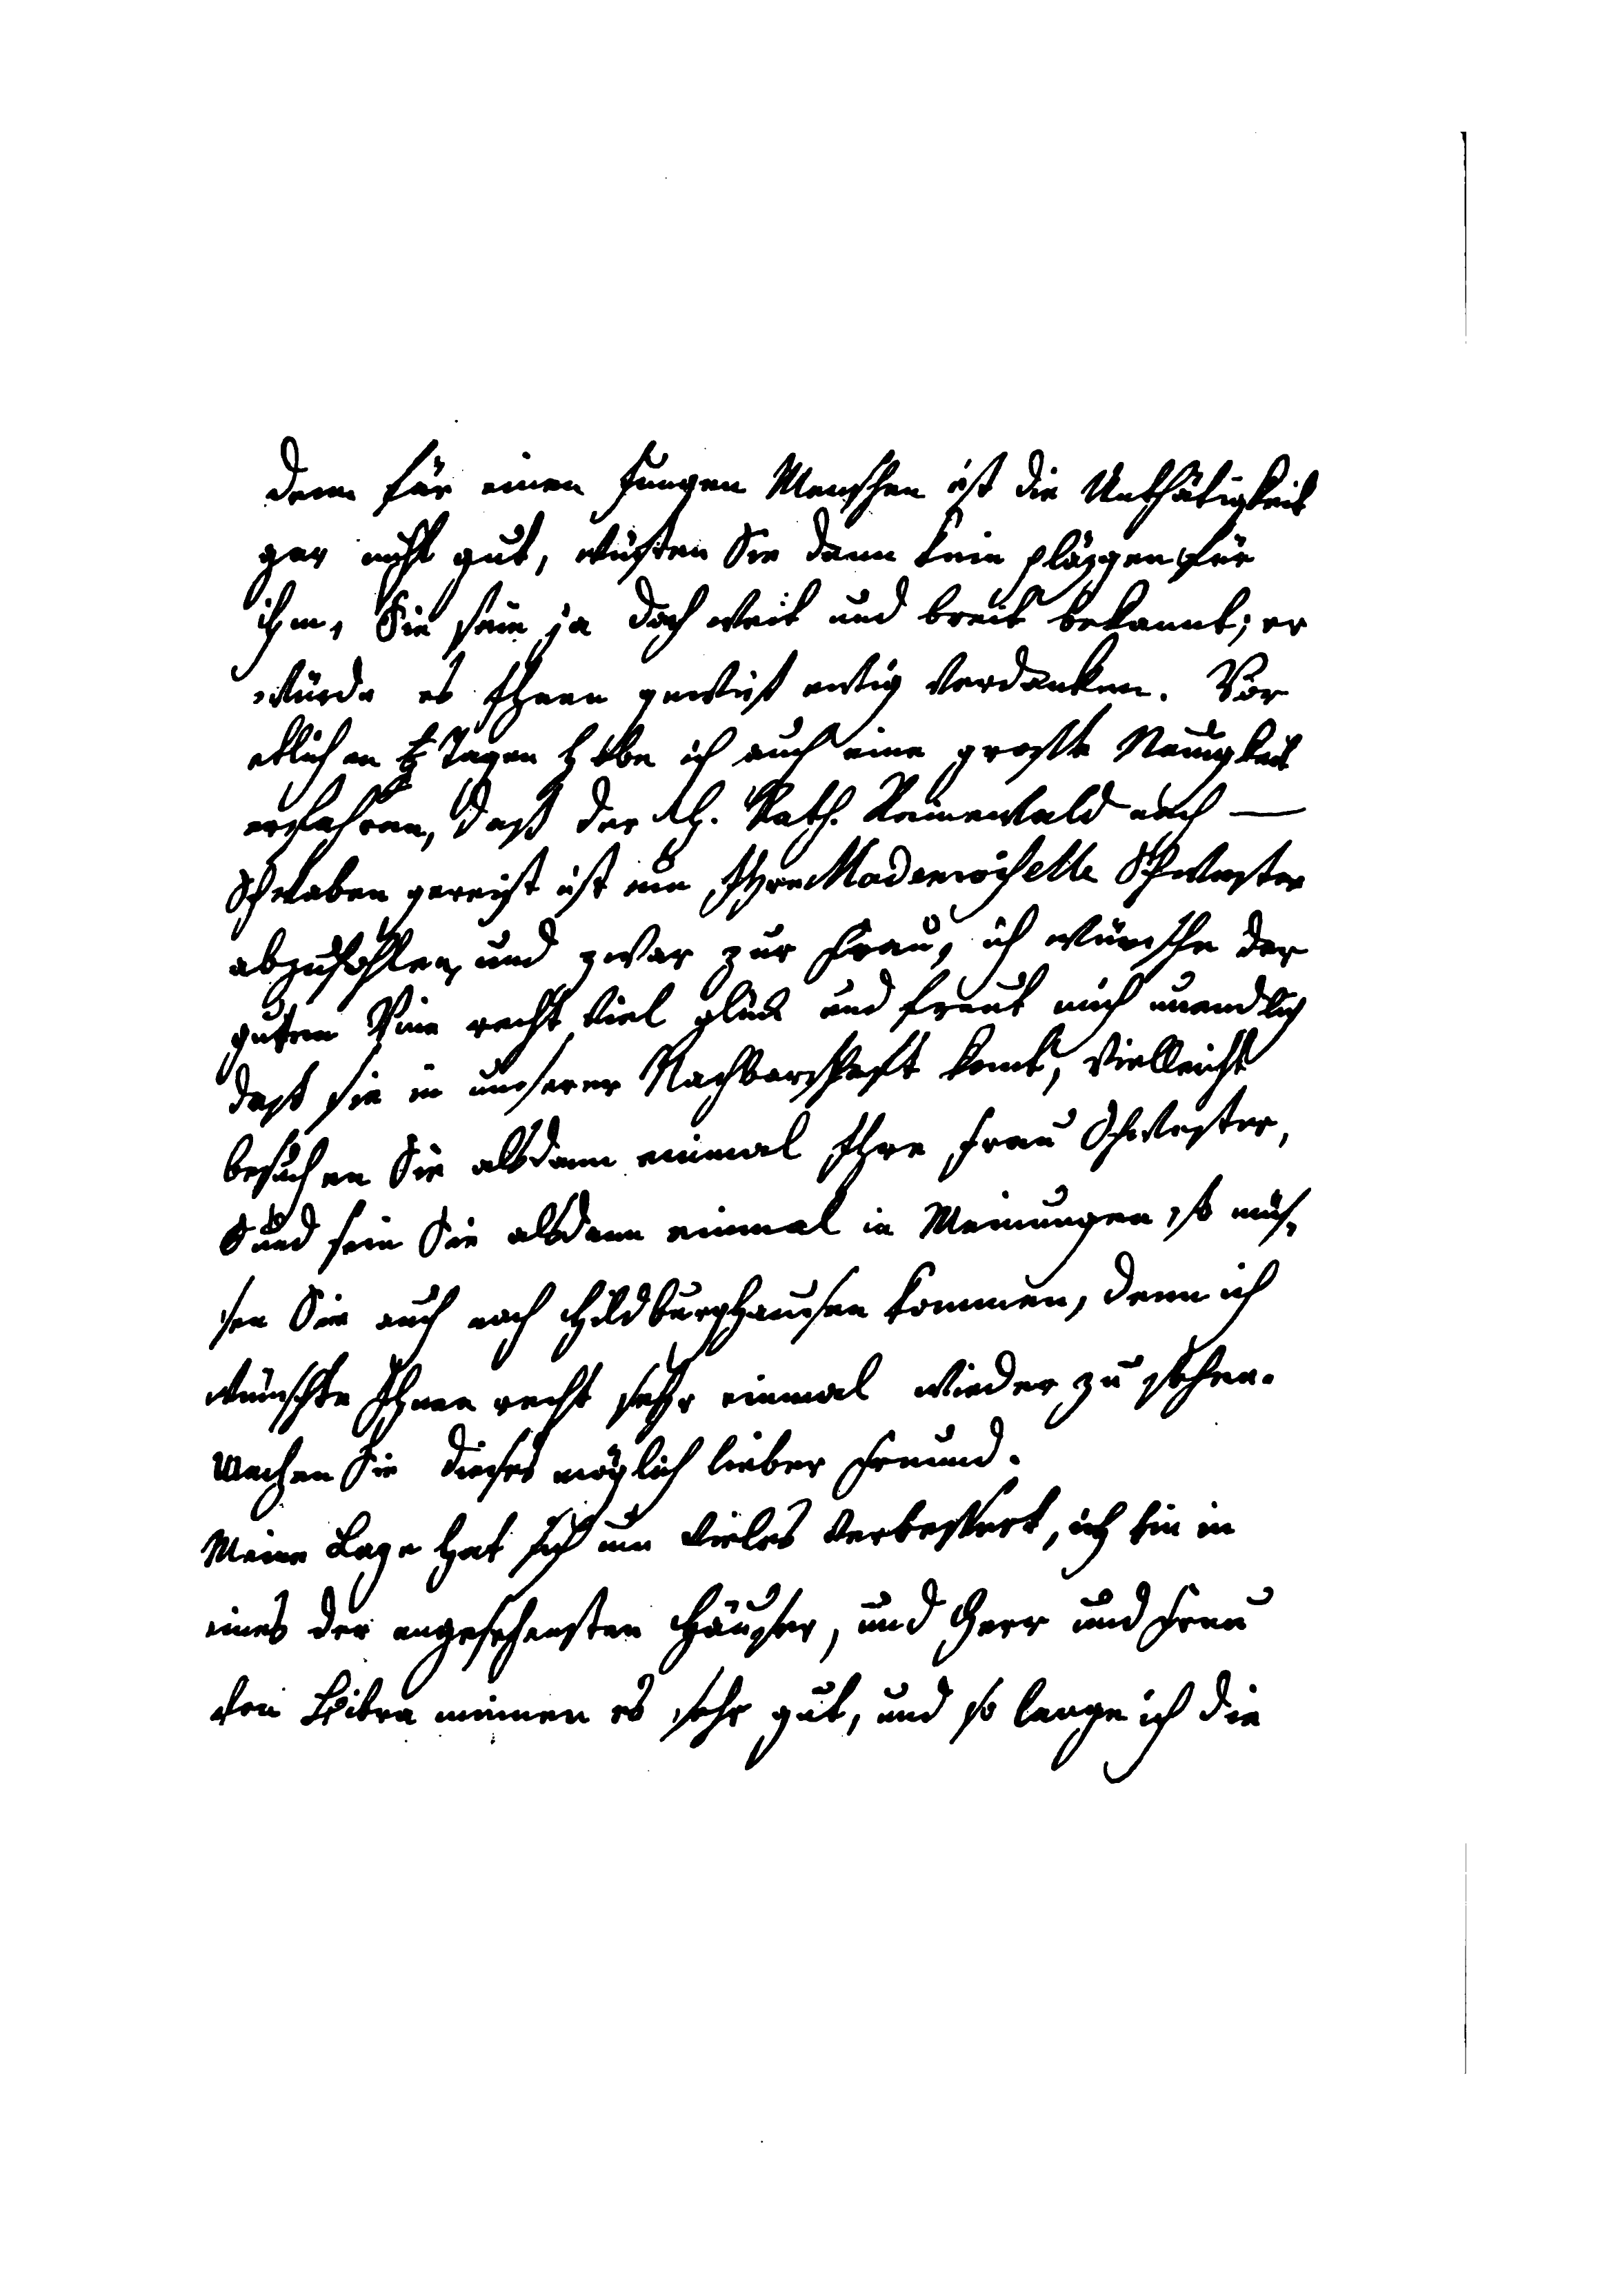 denn für einen Jungen Menschen ist die Unthätigkeit
gar nicht gut, wüsten Sie dann kein pläzgen für
ihm, Sie sein ja doch weit und breit bekannt; er
würde es Ihnen gewiss ewig verdanken. Vor
etlichen Tagen habe ich auch eine große Neuigkeit
erfahren, daß der H. Rath. Reinewald nach —
Schwaben gereist ist um Ihre Mademoiselle Schwester
abzuhohlen, und zwar zur Frau, ich wünsche der
guten recht viel glück und freut mich unendlich
daß sie in unserer Nachbarschaft komt, vielleicht
besuchen Sie alsdann einmal Ihre Frau Schwester,
und sein Sie alsdann einmal in Meinungen, so müs-
sen Sie auch nach Hildburghausen kommen, denn ich
wünschte Ihnen recht sehr einmal wieder zu sehen.
Machen Sie dieses möglich lieber Freund.
Meine Lage hat sich um vieles verbessert, ich bin in
eines der angesehensten Häuser, und Herr und Frau
von Bibra meinen es sehr gut, und so lange ich die